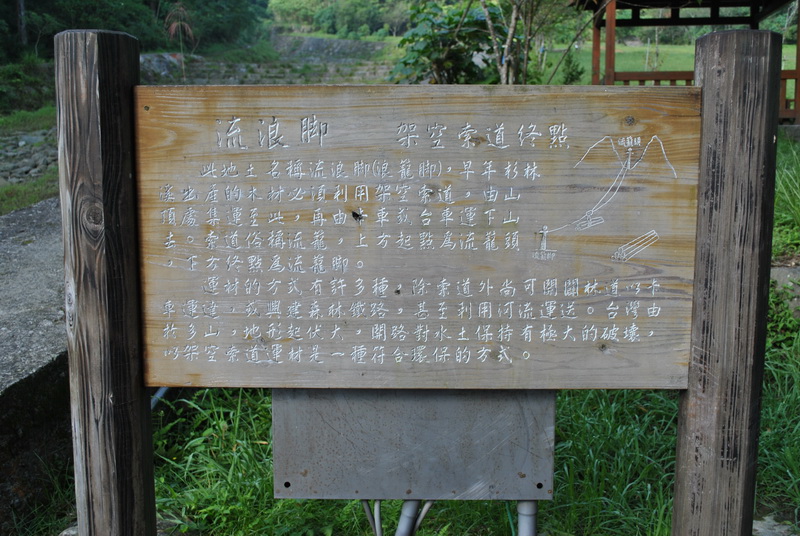 流浪腳　架空索道終點
此地土名稱流浪腳(浪籠腳)，早年杉林
溪出產的木材必須利用架空索道，由山
頂處集運至此，再由卡車或台車運下山
去。索道俗稱流籠，上方起點為流籠頭
，下方終點為流籠腳。
運材的方式有許多種，除索道外尚可開闢林道以卡
車運送，或興建森林鐵路，甚至利用河流運送。台灣由
於多山，地形起伏大，開路對水土保持有極大的破壞，
以架空索道運材是一種符合環保的方式。
流籠頭
流籠腳